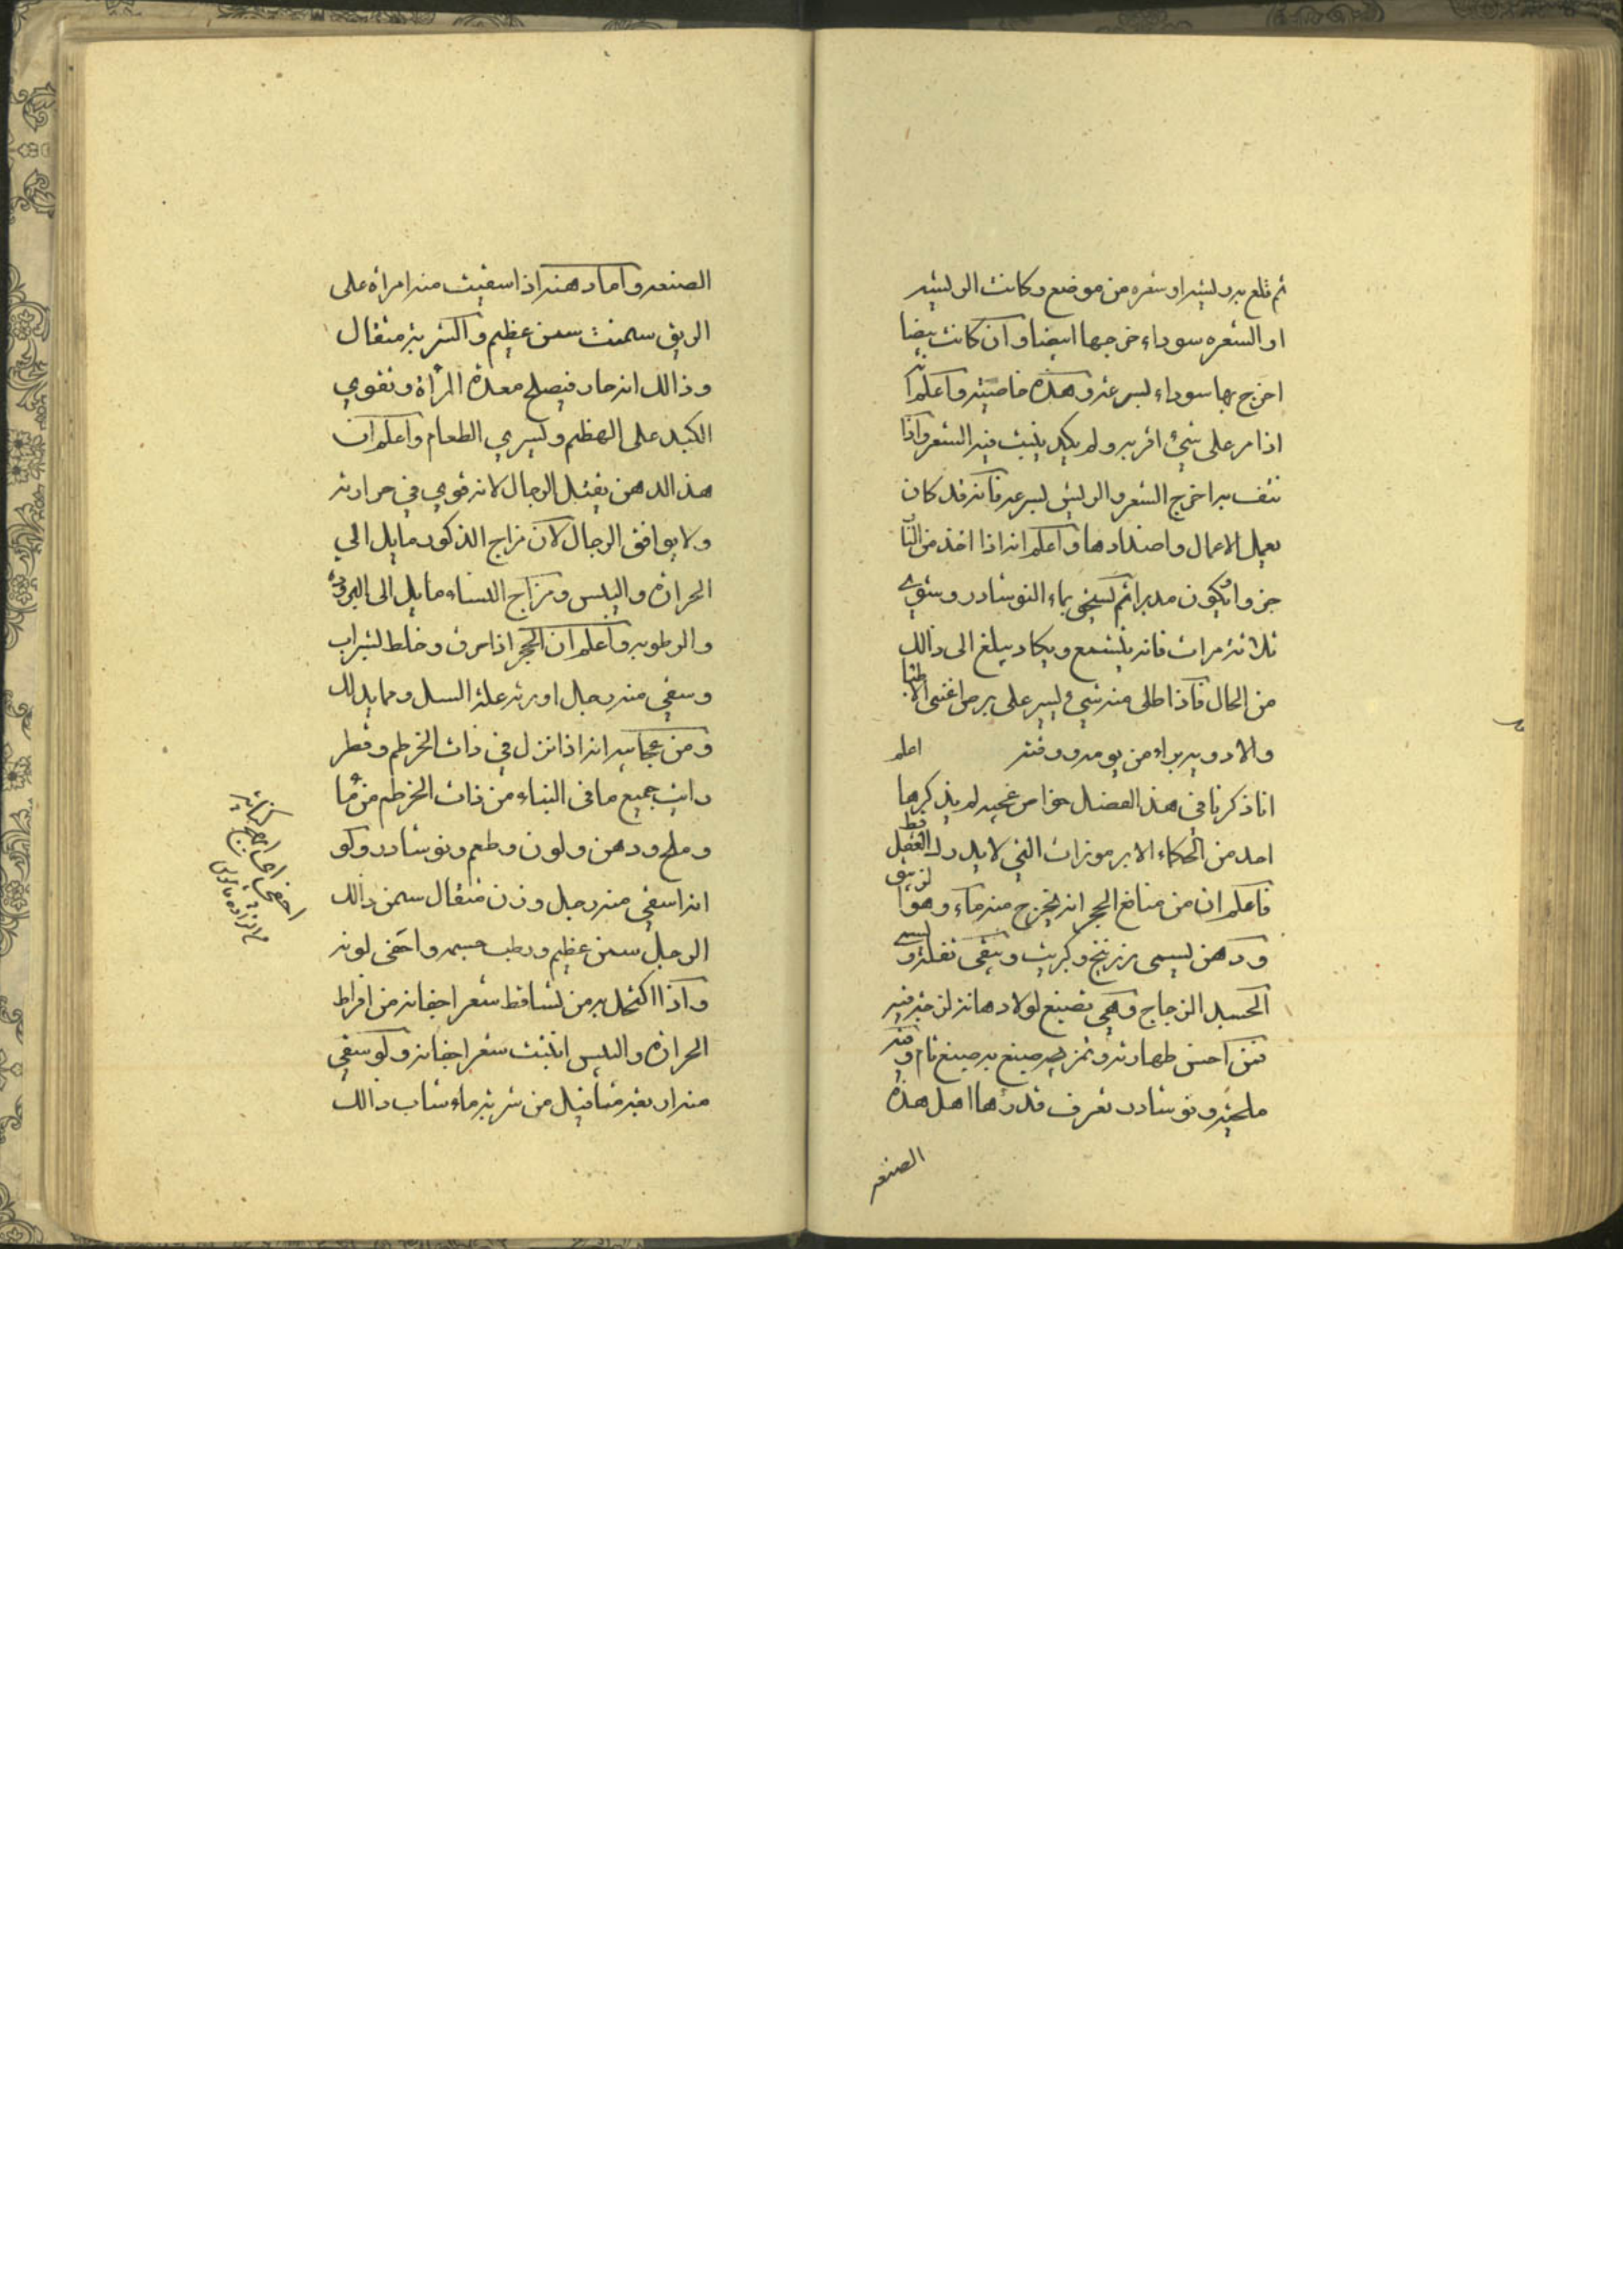 ثم قلع به ريشه او شعره من موضع وكانت الريشه
او الشعره سوداء خرجها ابيضا وان كانت بيضا
اخرج بها سوداء بسرعه وهذه خاصيته واعلم انه
اذا مر على شيئ اقر به ولم يكد ينبت فيه الشعر واذا
نتف به اخرج الشعر والريش بسرعه فانه قد كان
يعمل الاعمال واضدادها واعلم انه اذا اخذ من
جزوا يكون مدبرا ثم يسحق بماء النوشادر وشوي
ثلاثة مرات فانه يتشمع ويكاد يبلغ الى ذالك
من الحال فاذا طلى منه شيء يسير على برص اغنى الاطبا
والادويه براء من يومه ووقته اعلم
انا ذكرنا في هذ الفصل خواص عجيبه لم يذكرها
احد من الحكماء الا برموزات التي لا يدركه العقل قط
فاعلم ان من منافع الحجر انه يخرج منه ماء وهوا لزيبق
ودهن يسمى زرنيخ وكبريت ويبقى ثفلته ويسمى
الجسد الزجاج وهي تصبغ لولا دهانة لزجة فيه
فمن احسن طهارته وتمزيجه صبغ به صبغ تام وفيه
ملحية ونوشادر تعرف قدرها اهل هذه
الصنعه
الصنعه واما دهنه اذا سقيت منه امراة على
الريق سمنت سمن عظيم والشربة مثقال
وذالك انه حار فيصلح معدة المرأة وتقوي
الكبد على الهظم ويسري الطعام واعلم ان
هذ الدهن يقتل الرجال لانه قوي في حرارته
ولا يوافق الرجال لان مزاج الذكور مايل الي
الحرارة واليبس ومزاج النساء مايل الى البروده
والرطوبه واعلم ان الحجر اذا حرق وخلط بشراب
وسقي منه رجال اورثه علة السل ومما يدلك
ومن عجايبه انه اذا نزل في ذات الخرطم وقطر
رايت جميع ما في البناء من ذات الخرطم من ما
وملح ودهن ولون وطعم ونوشادر ولو
انه اسقي منه رجل وزن مثقال سمن ذالك
الرجل سمن عظيم ورطب جسمه واخفى لونه
واذا اكتحل به من تساقط شعر اجفانه من افراط
الحرارة واليبس انبتت شعر اجفانه ولو سقي
منه اربعة مثاقيل من شربة ماء شاب ذالك